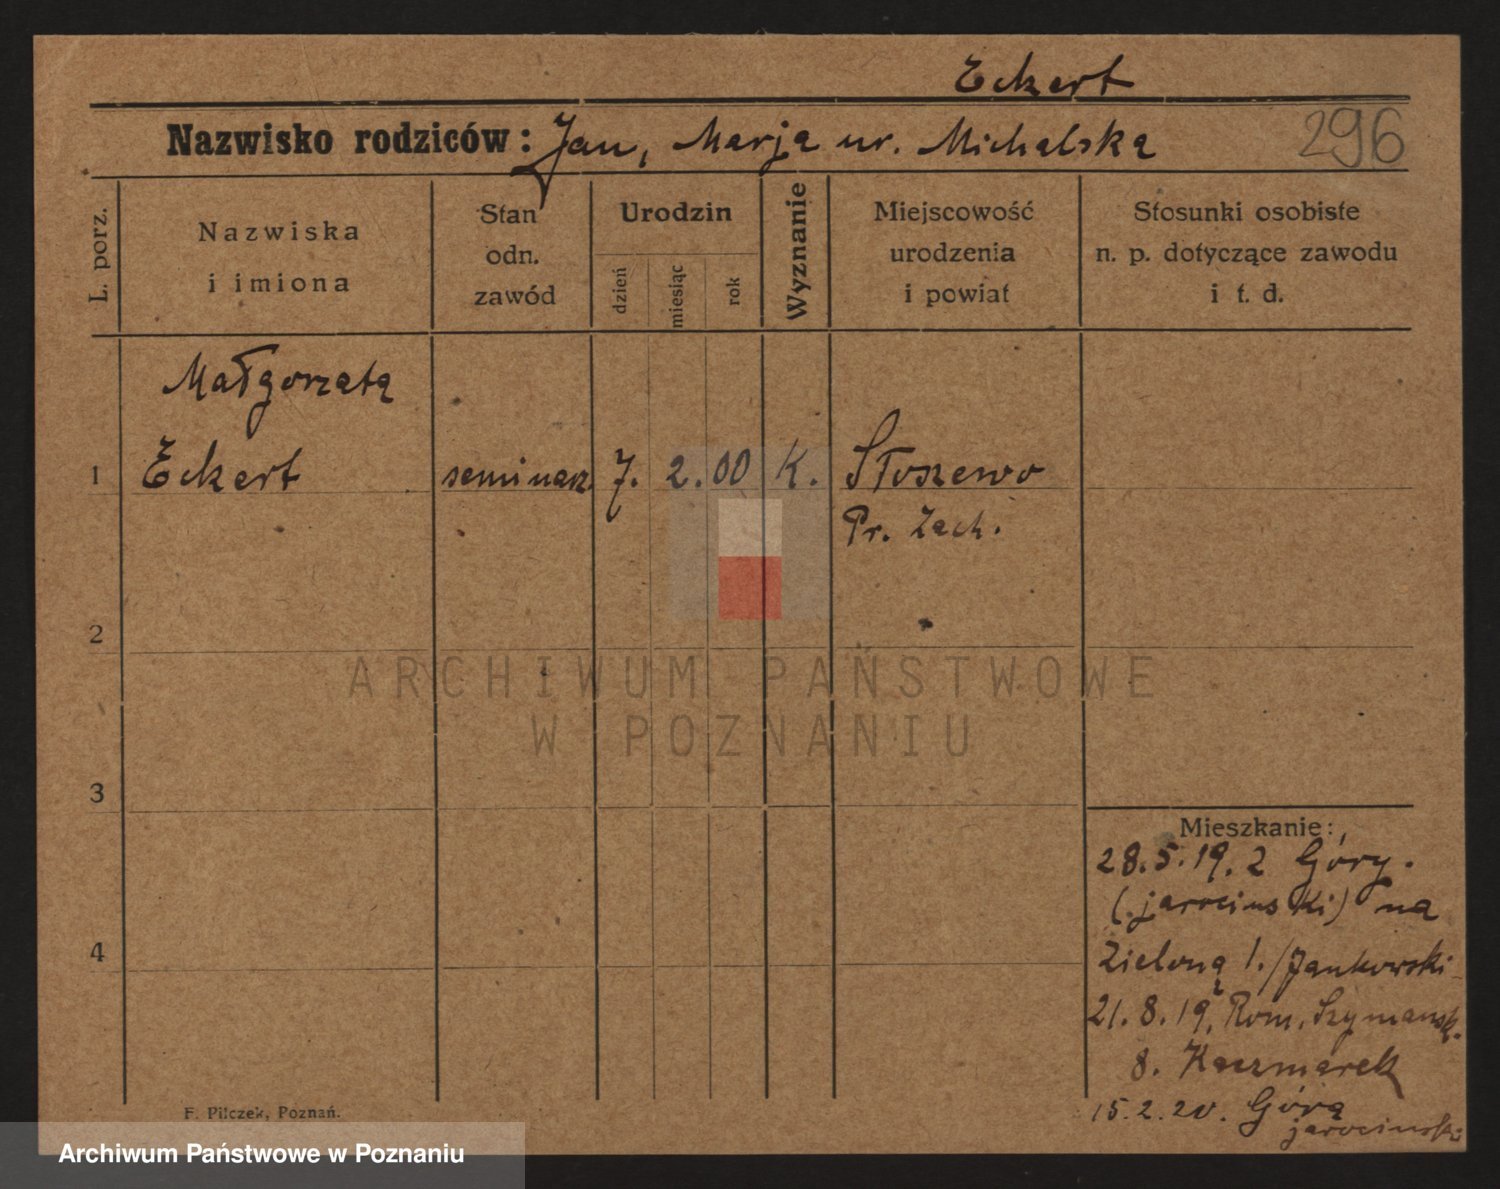 Eckert
Nazwisko rodziców: Jan, Marja ur. Michalska
296
L. porz.
Nazwiska
i imiona
Stan
odn.
zawód
Urodzin
dzień
miesiąc
rok
Wyznanie
Miejscowość
urodzenia
i powiat
Stosunki osobiste
n. p. dotyczące zawodu
i t. d.
Małgorzata
1 Eckert seminarz. 7. 2. 00 K. Słoszewo
Pr. Zach.
2
3
4
ARCHIWUM PAŃSTWOWE
W POZNANIU
Mieszkanie:
28.5.19. z Góry.
(jarocinski) na
Zieloną 1. /Jankowski
21.8.19. Rom. Szymansk.
8. Kaczmarek
15.2.20. Góra
jarocinski
F. Pilczek, Poznań.
Archiwum Państwowe w Poznaniu